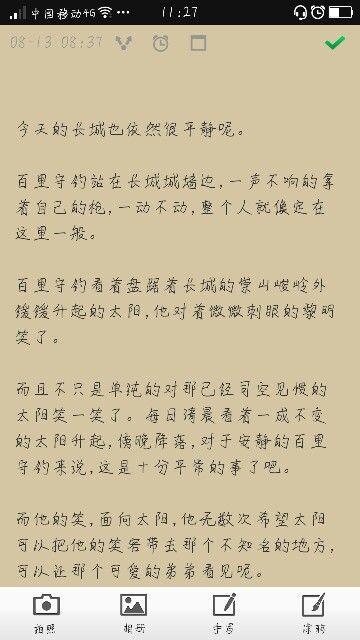 中国移动4G ••• 11:27
08-13 08:37
今天的长城也依然很平静呢。
百里守约站在长城城墙边,一声不响的拿
着自己的枪,一动不动,整个人就像定在
这里一般。
百里守约看着盘踞着长城的崇山峻岭外
缓缓升起的太阳,他对着微微刺眼的黎明
笑了。
而且不只是单纯的对那已经司空见惯的
太阳笑一笑了。每日清晨看着一成不变
的太阳升起,傍晚降落,对于安静的百里
守约来说,这是十分平常的事了吧。
而他的笑,面向太阳,他无数次希望太阳
可以把他的笑容带去那个不知名的地方,
可以让那个可爱的弟弟看见呢。
拍照 相册 字号 涂鸦